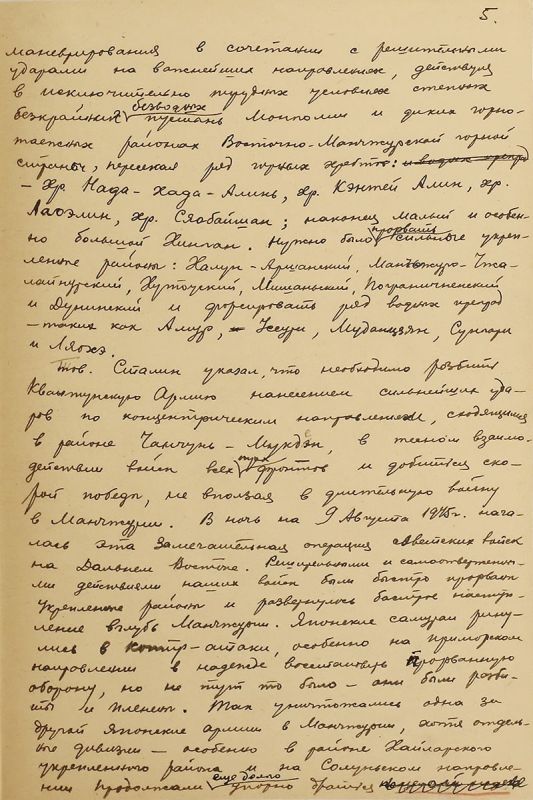 5.
маневрирования в сочетании с решительными
ударами на важнейших направлениях, действуя
в исключительно трудных условиях степных
безводных
безкрайних пустынь Монголии и диких горно-
таежных районах Восточно-Манчжурской горной
страны, пересекая ряд горных хребтов: и водных прегра
– хр. Нада-хада-Алинь, хр. Кэнтей Алин, хр.
Лаоэлин, хр. Сяобайшан; наконец Малый и особен-
прорвать
но большой Хинган. Нужно было сильные укреп-
ленные районы: Халун-Аршанский, Манчжуро-Чжа-
лайнурский, Хутоуский, Мишаньский, Пограничненский
и Дунинский и форсировать ряд водных преград
– таких как Амур, Уссури, Муданцзян, Сунгари
и Ляохэ.
Тов. Сталин указал, что необходимо разбить
Квантунскую Армию нанесением сильнейших уда-
ров по концентрическим направлениям, сходящимися
в районе Чанчунь – Мукдэн, в тесном взаимо-
трех
действии войск всех фронтов и добиться ско-
рой победы, не вползая в длительную войну
в Манчжурии. В ночь на 9 Августа 1945г. нача-
лась эта замечательная операция советских войск
на Дальнем Востоке. Решительными и самоотверженны-
ми действиями наших войск были быстро прорваны
укрепленные районы и развернулось быстрое наступ-
ление вглубь Манчжурии. Японские самураи рину-
лись в контр-атаки, особенно на приморском
направлении в надежде восстановить прорванную
оборону, но не тут то было – они были разби-
ты и пленены. Так уничтожались одна за
другой Японские армии в Манчжурии, хотя отдель-
ные дивизии – особенно в районе Хайларского
укрепленного района и на Солуньском направле-
еще долго
нии продолжали упорно драться